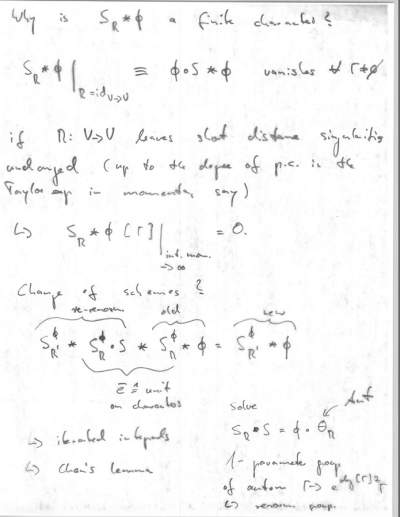 Why is S_R * φ a finite character?
S_R * φ |_{R = id_{V→V}} ≡ φ∘S * φ vanishes ∀ Γ ≠ ∅
if R: V→V leaves short distance singularities
unchanged (up to the degree of p.c. in the
Taylor exp in momenta, say)
↳ S_R * φ [Γ] |_{int. mom. → ∞} = 0.
Change of schemes?
re-renorm old new
S_{R'}^φ * S_R^φ∘S * S_R^φ * φ = S_{R'}^φ * φ
ē ≙ unit
on characters
↳ iterated integrals
↳ Chen's lemma
solve Aut
S_R∘S = φ∘θ_R
1-parameter group
of autom Γ→ e
↳ renorm group.